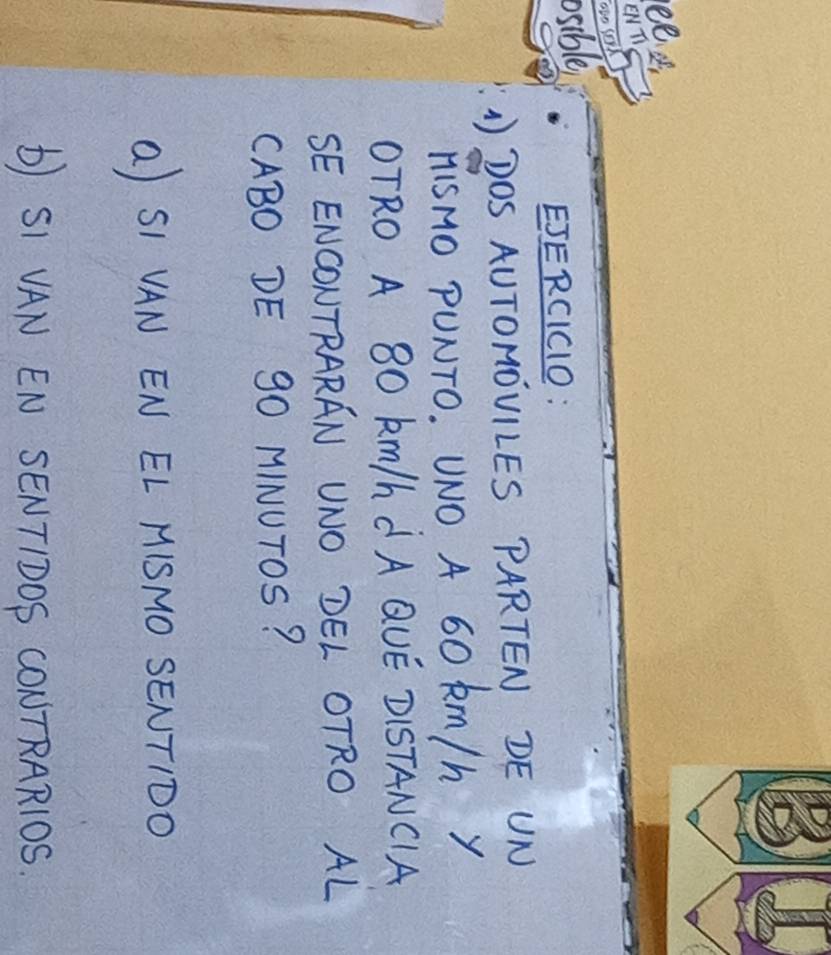 EJERCICIO:
1) DOS AUTOMÓVILES PARTEN DE UN
MISMO PUNTO. UNO A 60 km/h Y
OTRO A 80 km/h ¿A QUÉ DISTANCIA
SE ENCONTRARÁN UNO DEL OTRO AL
CABO DE 90 MINUTOS?
a) SI VAN EN EL MISMO SENTIDO
b) SI VAN EN SENTIDOS CONTRARIOS.
EN TI
TODO SERÁ
osible
BI